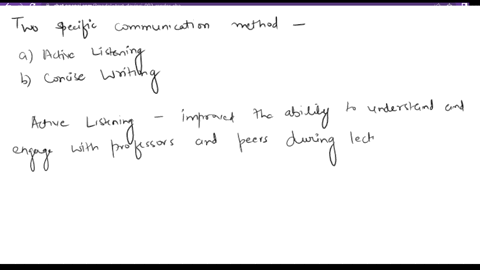 Two specific communication method —
a) Active Listening
b) Concise Writing
Active Listening — improved the ability to understand and
engage with professors and peers during lect